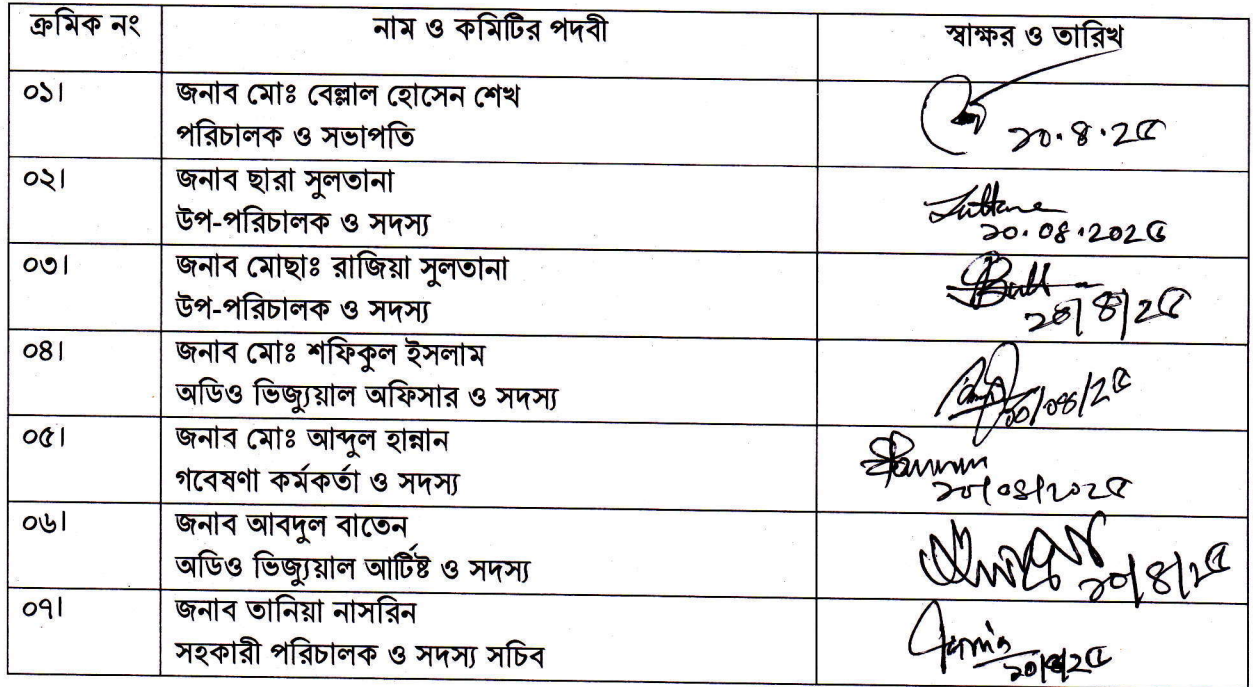 ক্রমিক নং নাম ও কমিটির পদবী স্বাক্ষর ও তারিখ
০১। জনাব মোঃ বেল্লাল হোসেন শেখ
পরিচালক ও সভাপতি
২০.৪.২৫
০২। জনাব ছারা সুলতানা
উপ-পরিচালক ও সদস্য
২০.০৪.২০২৫
০৩। জনাব মোছাঃ রাজিয়া সুলতানা
উপ-পরিচালক ও সদস্য
০৪। জনাব মোঃ শফিকুল ইসলাম
অডিও ভিজ্যুয়াল অফিসার ও সদস্য
০৫। জনাব মোঃ আব্দুল হান্নান
গবেষণা কর্মকর্তা ও সদস্য
২০/০৪/২০২৫
০৬। জনাব আবদুল বাতেন
অডিও ভিজ্যুয়াল আর্টিষ্ট ও সদস্য
২০/৪/২৫
০৭। জনাব তানিয়া নাসরিন
সহকারী পরিচালক ও সদস্য সচিব